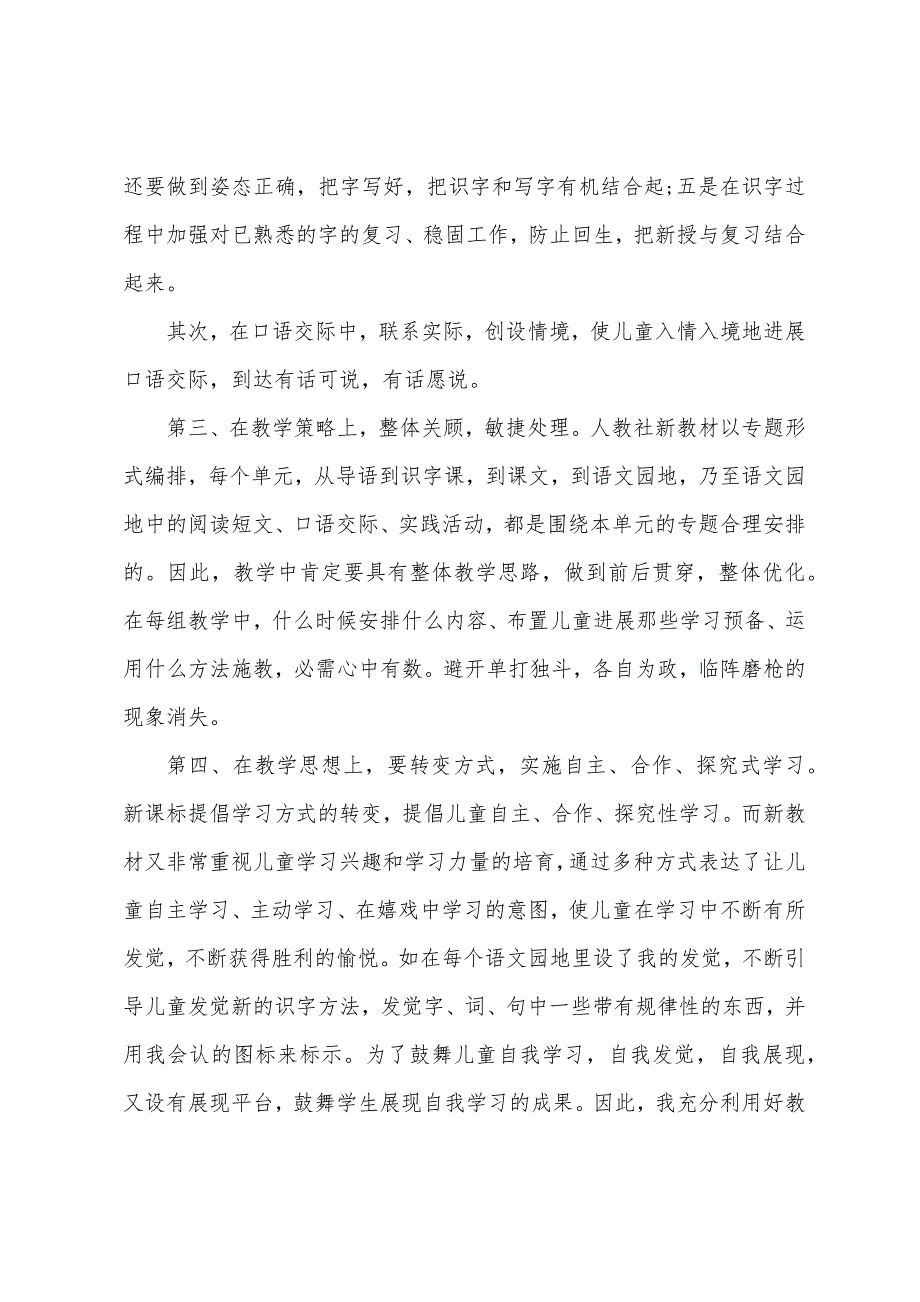 还要做到姿态正确，把字写好，把识字和写字有机结合起;五是在识字过
程中加强对已熟悉的字的复习、稳固工作，防止回生，把新授与复习结合
起来。
其次，在口语交际中，联系实际，创设情境，使儿童入情入境地进展
口语交际，到达有话可说，有话愿说。
第三、在教学策略上，整体关顾，敏捷处理。人教社新教材以专题形
式编排，每个单元，从导语到识字课，到课文，到语文园地，乃至语文园
地中的阅读短文、口语交际、实践活动，都是围绕本单元的专题合理安排
的。因此，教学中肯定要具有整体教学思路，做到前后贯穿，整体优化。
在每组教学中，什么时候安排什么内容、布置儿童进展那些学习预备、运
用什么方法施教，必需心中有数。避开单打独斗，各自为政，临阵磨枪的
现象消失。
第四、在教学思想上，要转变方式，实施自主、合作、探究式学习。
新课标提倡学习方式的转变，提倡儿童自主、合作、探究性学习。而新教
材又非常重视儿童学习兴趣和学习力量的培育，通过多种方式表达了让儿
童自主学习、主动学习、在嬉戏中学习的意图，使儿童在学习中不断有所
发觉，不断获得胜利的愉悦。如在每个语文园地里设了我的发觉，不断引
导儿童发觉新的识字方法，发觉字、词、句中一些带有规律性的东西，并
用我会认的图标来标示。为了鼓舞儿童自我学习，自我发觉，自我展现，
又设有展现平台，鼓舞学生展现自我学习的成果。因此，我充分利用好教